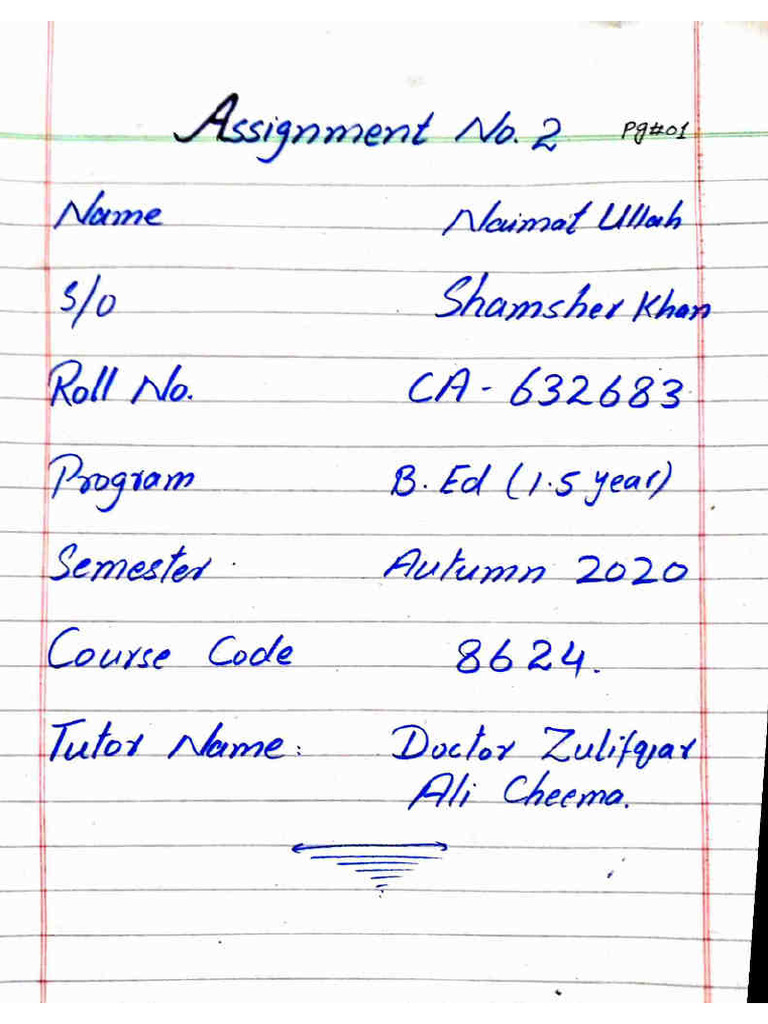 Assignment No. 2 Pg#01
Name Naimat Ullah
S/O Shamsher Khan
Roll No. CA - 632683
Program B. Ed (1.5 year)
Semester Autumn 2020
Course Code 8624.
Tutor Name: Doctor Zulifqar
Ali Cheema.